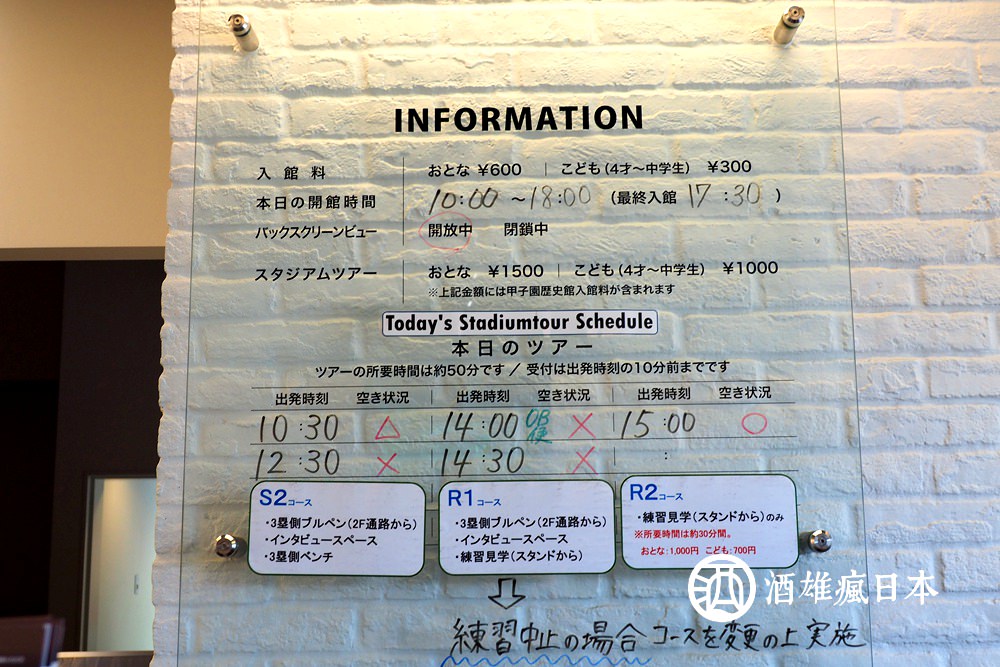 INFORMATION
入館料 おとな ¥600 | こども(4才〜中学生) ¥300
本日の開館時間 10:00 〜18:00 (最終入館 17:30 )
バックスクリーンビュー 開放中 閉鎖中
スタジアムツアー おとな ¥1500 | こども(4才〜中学生) ¥1000
※上記金額には甲子園歴史館入館料が含まれます
Today's Stadiumtour Schedule
本日のツアー
ツアーの所要時間は約50分です / 受付は出発時刻の10分前までです
出発時刻 空き状況 | 出発時刻 空き状況 | 出発時刻 空き状況
10:30 △ | 14:00 OB便 × | 15:00 ○
12:30 × | 14:30 × | :
S2コース
・3塁側ブルペン(2F通路から)
・インタビュースペース
・3塁側ベンチ
R1コース
・3塁側ブルペン(2F通路から)
・インタビュースペース
・練習見学(スタンドから)
R2コース
・練習見学(スタンドから)のみ
※所要時間は約30分間。
おとな:1,000円 こども:700円
練習中止の場合 コースを変更の上実施
酒 酒雄瘋日本